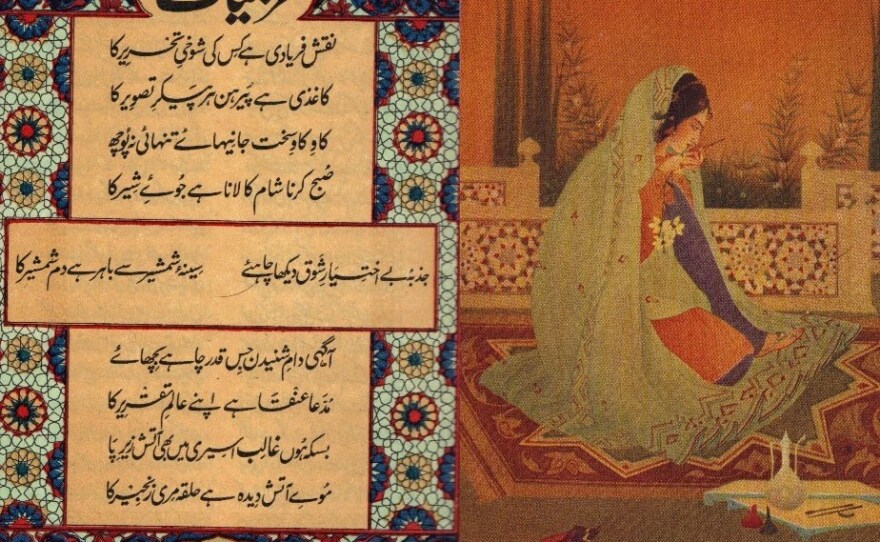 نقش فریادی ہے کِس کی شوخیِ تحریر کا
کاغذی ہے پیرہن ہر پیکرِ تصویر کا
کاوِ کاوِ سخت جانیہائے تنہائی نہ پوچھ
صُبح کرنا شام کا لانا ہے جوئے شِیر کا
جذبۂ بے اختیارِ شوق دیکھا چاہئے سینۂ شمشیر سے باہر ہے دم شمشیر کا
آگہی دامِ شنیدن جس قدر چاہے بچھائے
مُدّعا عنقا ہے اپنے عالمِ تقریر کا
بسکہ ہُوں غالبؔ اسیری میں بھی آتش زیرِ پا
موئے آتش دیدہ ہے حلقہ مری زنجیر کا